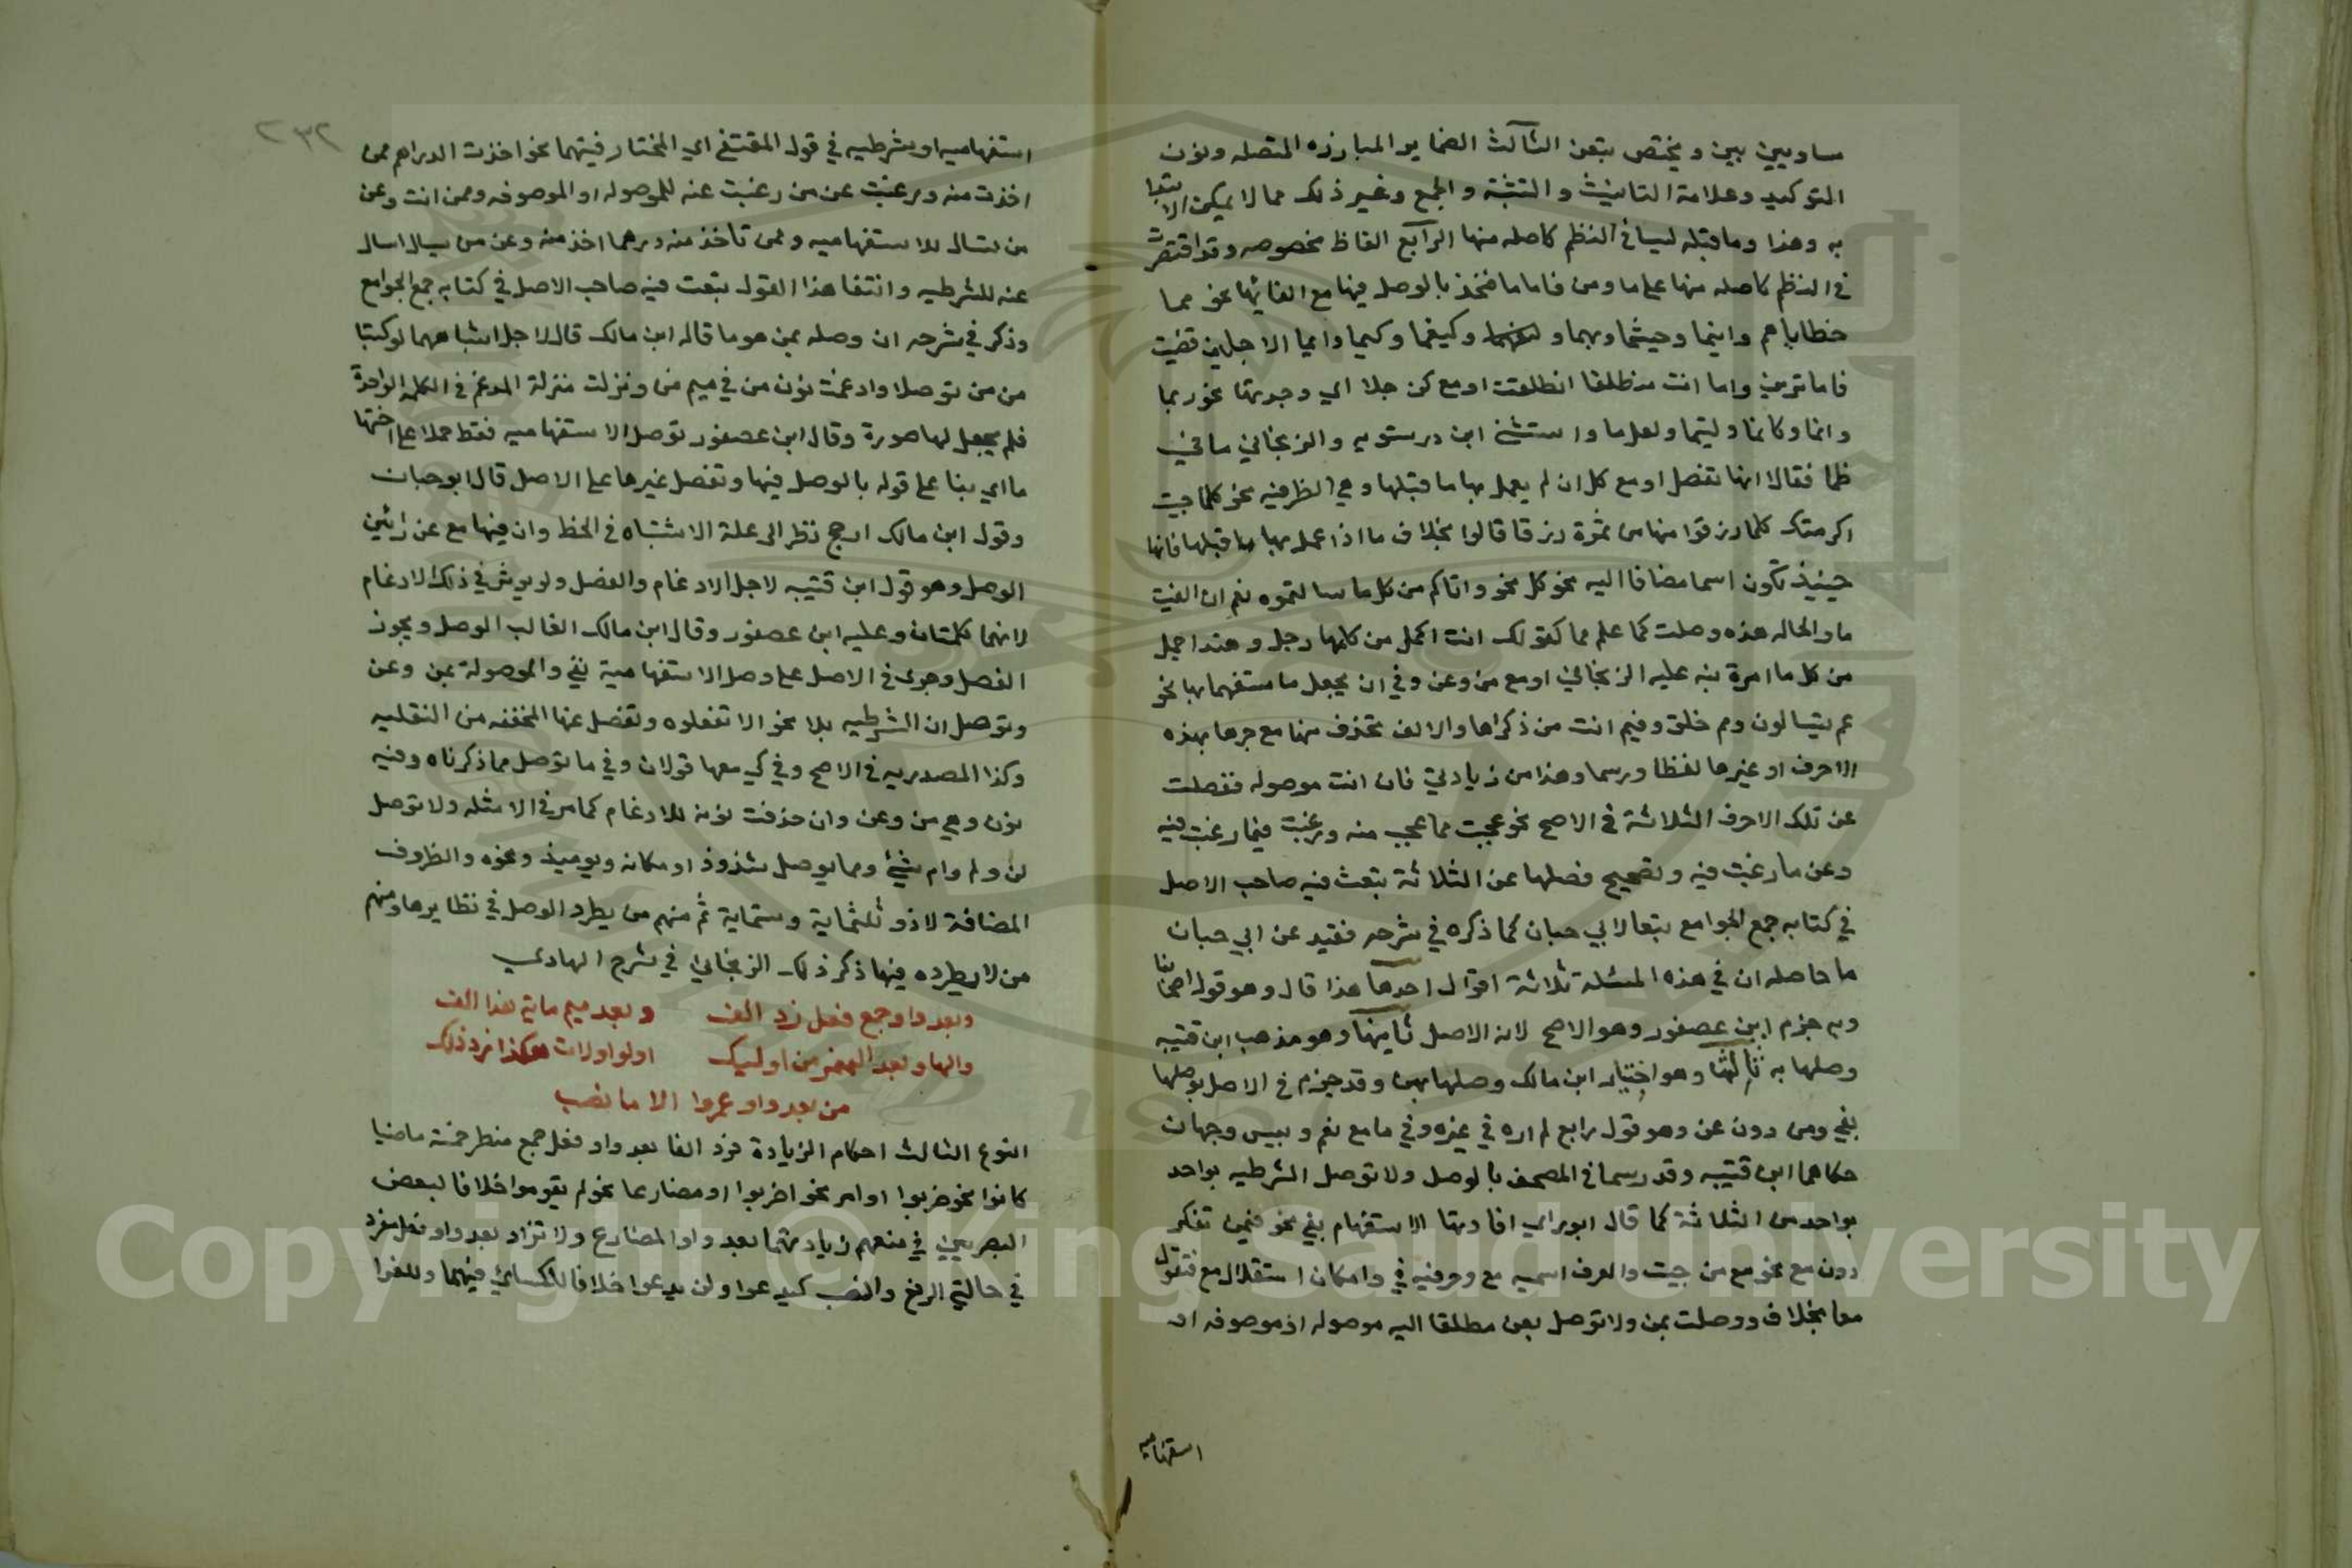 ساويين بين ويختص بتعن الثالث الضماير البارزه المتصله ونون
التوكيد وعلامة التانيث والتثنية والجمع وغير ذلك مما لا يمكن الابتدا
به وهذا وما قبله ليسا في النظم كاصله منها الرابع الفاظ مخصوصه وقد اقتصرت
في النظم كاصله منها على ما ومن فاما ما فتخذ بالوصل فيها مع الفائها نحو مما
خطاياهم واينما وحيثما ومهما وكيفما وكيما وايما الاجلين قضيت
فاما ترين واما انت منطلقا انطلقت اومع كن جلا اي وجدتها نحو ربما
وانما وكانما وليتما ولعلما واستثنى ابن درستويه والزنجاني ما في
ظما فقالا انها تفصل اومع كل ان لم يعمل بها ما قبلها وهي الظرفيه نحو كلما جيت
اكرمتك كلما رزقوا منها من ثمرة رزقا قالوا بخلاف ما اذا عمل بها ما قبلها فانها
حينيذ تكون اسما مضافا اليه نحو كل نحو واتاكم من كل ما سالتموه نعم ان الفيت
ما والحاله هذه وصلت كما علم مما كقولك انت اكمل من كلما رجل وهند اجمل
من كل ما امرة نبه عليه الزنجاني اومع من وعن وفي ان يجعل ما مستفهما بها نحو
عم يتسالون ومم خلق وفيم انت من ذكراها والالف تحذف منها مع جرها بهذه
الاحرف او غيرها لفظا ورسما وهذا من زيادتي فان انت موصوله ففصلت
عن تلك الاحرف الثلاثة في الاصح نحو عجبت مما عجب منه ورغبت فيما رغبت فيه
وعن ما رغبت فيه وتصحيح فصلها عن الثلاثة تبعت فيه صاحب الاصل
في كتابه جمع الجوامع تبعا لابي حيان كما ذكره في شرحه فقيد عن ابي حيان
ما حاصله ان في هذه المسئلة ثلاثة اقوال احدها هذا قال وهو قول اصحابنا
وبه جزم ابن عصفور وهو الاصح لانه الاصل ثانيها وهو مذهب ابن قتيبه
وصلها به ثالثها وهو اختيار ابن مالك وصلها بهن وقد جزم في الاصل بوصلها
بفي ومن دون عن وهو قول رابع لم اره في غيره وفي ما مع نعم وبيس وجهان
حكاهما ابن قتيبه وقد رسما في المصحف بالوصل ولا توصل الشرطيه بواحد
بواحد من الثلاثة كما قال ابو براي افادتها الاستفهام بفي نحو فيمن تفكر
دون مع نحو مع من جيت والفرف اسميه مع وحرفيه في وامكان استقلال مع فتقول
معا بخلاف ووصلت بمن ولا توصل بعن مطلقا اليه موصوله او موصوفه او
استفهاميه
٢٣٢
استفهاميه او شرطيه في قول المقتفى اي المختار فيتهما نحو اخذت الدراهم ممن
اخذت منه ورغبت عن من رغبت عنه للموصوله او الموصوفه وممن انت وعن
من تسال للاستفهاميه وممن تاخذ منه درهما اخذ منه وعن من يسال اسال
عنه للشرطيه وانتفا هذا القول تبعت فيه صاحب الاصل في كتابه جمع الجوامع
وذكر في شرحه ان وصله بمن هو ما قاله ابن مالك قال لاجل اشتباههما لو كتبا
من من توصلا وادغمت نون من في ميم من ونزلت منزلة المدغم في الكلمة الواحدة
فلم يجعل لها صورة وقال ابن عصفور توصل الاستفهاميه فقط حملا على اختها
ما اي بنا على قوله بالوصل فيها وتفصل غيرها على الاصل قال ابو حيان
وقول ابن مالك ارجح نظر الى علة الاشتباه في الخط وان فيها مع عن رائين
الوصل وهو قول ابن قتيبه لاجل الادغام والفصل ولو يوثر في ذلك الادغام
لانهما كلمتان وعليه ابن عصفور وقال ابن مالك الغالب الوصل ويجوز
الفصل وجرى في الاصل على وصل الاستفهامية بفي والموصولة بمن وعن
وتوصل ان الشرطيه بلا نحو الا تفعلوه وتفصل عنها المخففه من الثقليه
وكذا المصدريه في الاصح وفي كي معها قولان وفي ما توصل مما ذكرناه وفيه
نون وهي من وعن وان حذفت نونه للادغام كما مر في الامثله ولا توصل
لن ولم وام بشيئ ومما يوصل بشذوذ او مكانه ويوميذ ونحوه والظروف
المضافة لاذ وثلثماية وستماية ثم منهم من يطرد الوصل في نظايرها ومنهم
من لا يطرده فيها ذكر ذلك الزنجاني في شرح الهادي
وبعد واو جمع فعل زد الف وبعد ميم ماية هذا الف
والها وبعد الهمز من اوليك اولو اولات هكذا فرد ذلك
من بعد واو عمروا الا ما نصب
النوع الثالث احكام الزيادة فزد الفا بعد واو فعل جمع منطرحته ماضيا
كانوا نحو ضربوا او امر نحو اضربوا او مضارعا نحو لم يقوموا خلافا لبعض
البصريين في منعهم زيادتهما بعد واو المضارع ولا تزاد بعد واو فعل مفرد
في حالتي الرفع والنصب كيدعوا ولن يدعوا خلافا للكسائي فيهما وللفرا
Copyright © King Saud University